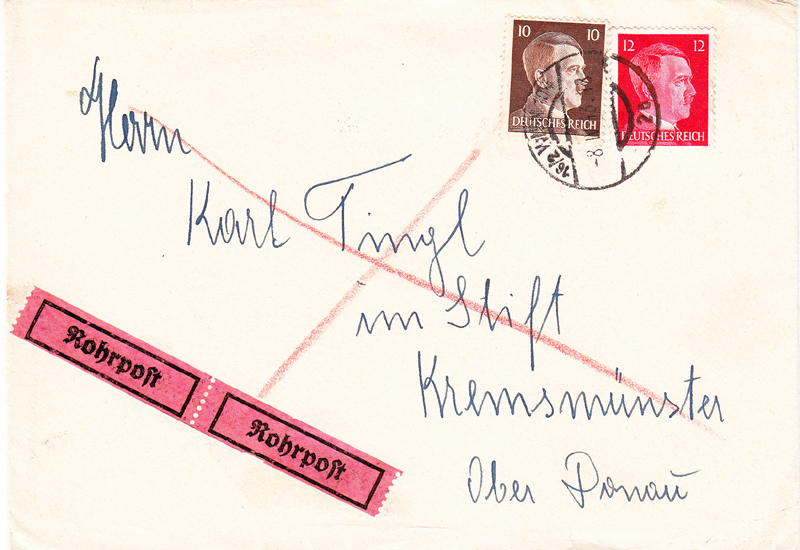 10 10
DEUTSCHES REICH
12 12
DEUTSCHES REICH
Herrn
Karl Tingl
im Stift
Kremsmünster
Ober Donau
Rohrpost
Rohrpost